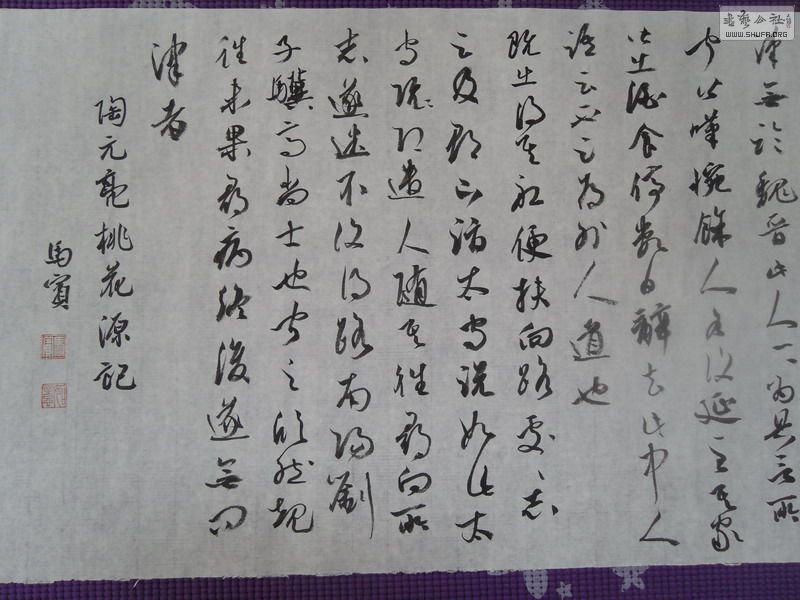 漢無論魏晉此人一一為具言所
聞皆嘆惋餘人各復延至其家
皆出酒食停數日辭去此中人
語云不足為外人道也
既出得其船便扶向路處〻志
之及郡下詣太守說如此太
守隨即遣人隨其往尋向所
志遂迷不復得路南陽劉
子驥高尚士也聞之欣然規
往未果尋病終後遂無問
津者
陶元亮桃花源記
馬賓
書藝公社
WWW.SHUFA.ORG